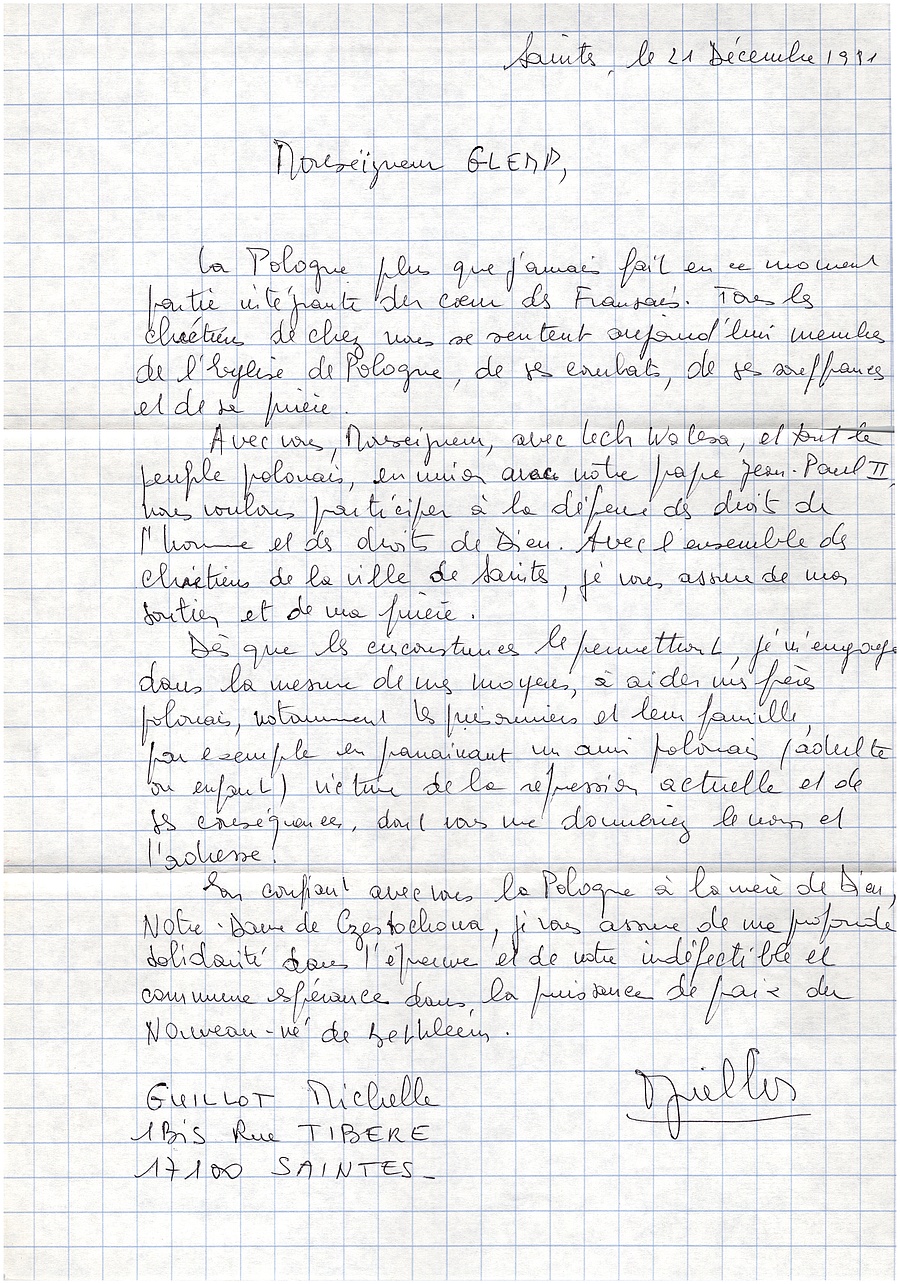 Saintes, le 21 Décembre 1981
Monseigneur GLEMP,
La Pologne plus que jamais fait en ce moment
partie intégrante du cœur des Français. Tous les
chrétiens de chez nous se sentent aujourd'hui membres
de l'Eglise de Pologne, de ses combats, de ses souffrances
et de sa prière.
Avec vous, Monseigneur, avec Lech Walesa, et tout le
peuple polonais, en union avec notre pape Jean-Paul II,
nous voulons participer à la défense des droits de
l'homme et des droits de Dieu. Avec l'ensemble des
chrétiens de la ville de Saintes, je vous assure de mon
soutien et de ma prière.
Dès que les circonstances le permettront, je m'engage
dans la mesure de mes moyens, à aider mes frères
polonais, notamment les prisonniers et leur famille,
par exemple en parrainant un ami polonais (adulte
ou enfant) victime de la répression actuelle et de
ses conséquences, dont vous me donneriez le nom et
l'adresse!
En confiant avec vous la Pologne à la mère de Dieu,
Notre-Dame de Częstochowa, je vous assure de ma profonde
solidarité dans l'épreuve et de notre indéfectible et
commune espérance dans la puissance de paix du
Nouveau-né de Bethléem.
GUILLOT Michelle
1Bis Rue TIBERE
17100 SAINTES_